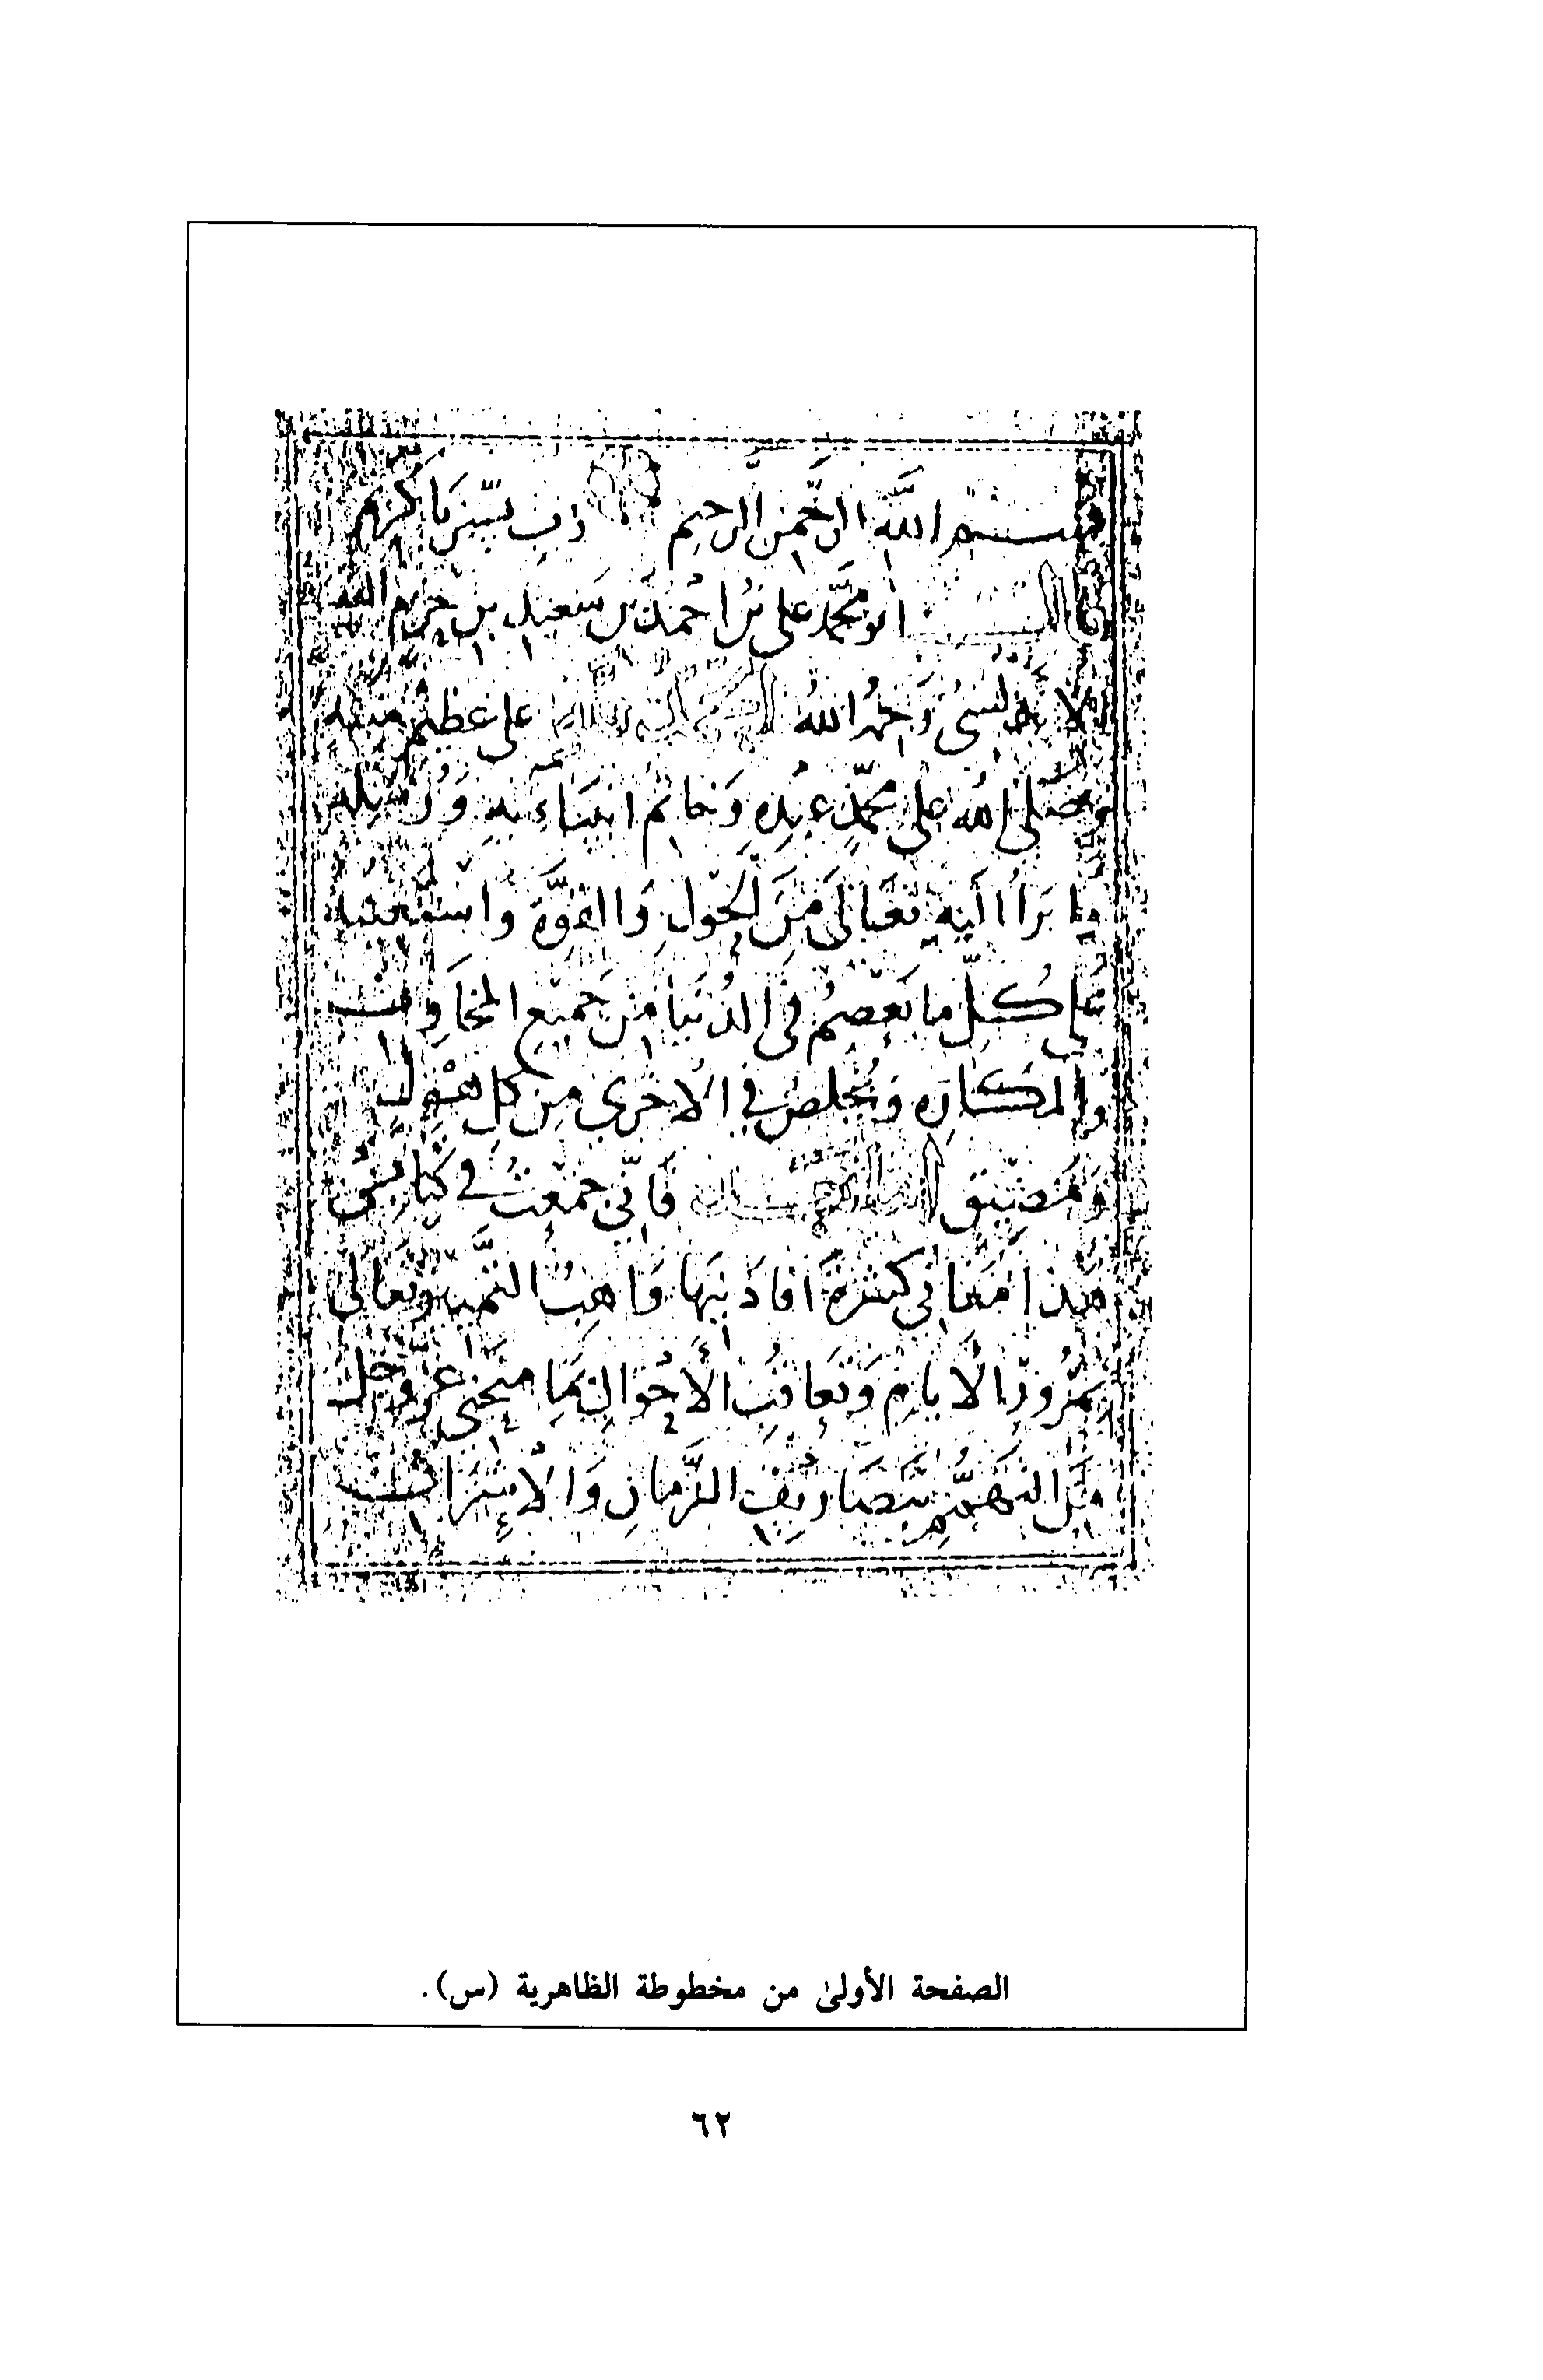 بسم الله الرحمن الرحيم رب يسر يا كريم
قال أبو محمد علي بن أحمد بن سعيد بن حزم الفقيه
الاندلسي رحمه الله الحمد لله على عظيم مننه
وصلى الله على محمد عبده وخاتم انبيائه ورسله
وابرأ اليه تعالى من الحول والقوة واستعينه
على كل ما يعصم في الدنيا من جميع المخاوف
والمكاره ويخلص في الاخرى من كل هول
ومضيق فاني جمعت في كتابي
هذا معاني كثيرة أفادنيها واهب التمييز تعالى
بمرور الأيام وتعاقب الأحوال بما منحني عز وجل
من التهمم بتصاريف الزمان والاشراف
الصفحة الأولىٰ من مخطوطة الظاهرية (س).
٦٢